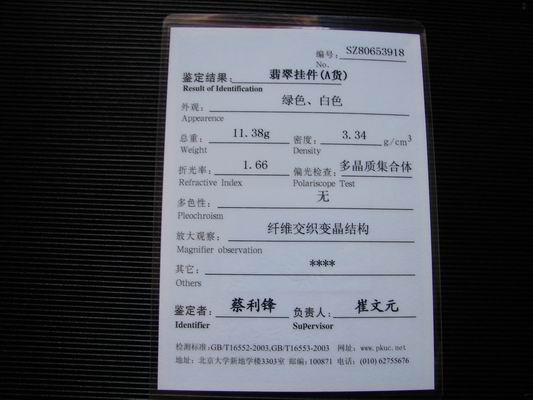 编号: SZ80653918
No.
鉴定结果: 翡翠挂件(A货)
Result of Identification
外观: 绿色、白色
Appearence
总重: 11.38g 密度: 3.34 g/cm³
Weight Density
折光率: 1.66 偏光检查: 多晶质集合体
Refractive Index Polariscope Test
多色性: 无
Pleochroism
放大观察: 纤维交织变晶结构
Magnifier observation
其它: ****
Others
鉴定者: 蔡利锋 负责人: 崔文元
Identifier SuPervisor
检测标准:GB/T16552-2003,GB/T16553-2003 网址: www.pkuc.net
地址: 北京大学新地学楼3303室 邮编:100871 电话: (010) 62755676